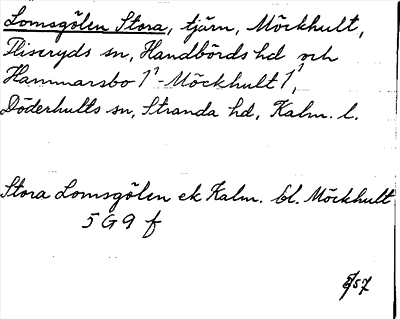 Lomsgölen Stora, tjärn, Möckhult,
Fliseryds sn, Handbörds hd och
Hammarsbo 1¹-Möckhult 1¹,
Döderhults sn, Stranda hd, Kalm. l.
Stora Lomsgölen ek Kalm. bl. Möckhult
5 G 9 f
/57